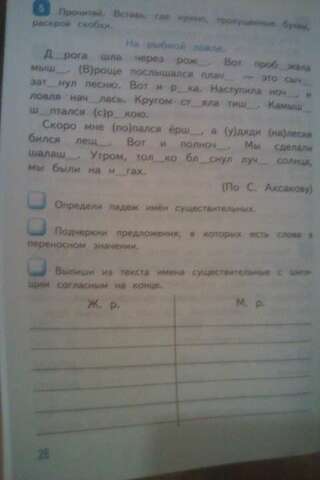 5 Прочитай. Вставь, где нужно, пропущенные буквы,
раскрой скобки.
На рыбной ловле.
Д__рога шла через рож__. Вот проб__жала
мыш__. (В)роще послышался плач__ — это сыч__
зат__нул песню. Вот и р__ка. Наступила ноч__, и
ловля нач__лась. Кругом ст__яла тиш__. Камыш__
ш__птался (с)р__кою.
Скоро мне (по)пался ёрш__, а (у)дяди (на)леске
бился лещ__. Вот и полноч__. Мы сделали
шалаш__. Утром, тол__ко бл__снул луч__ солнца,
мы были на н__гах.
(По С. Аксакову)
Определи падеж имён существительных.
Подчеркни предложения, в которых есть слова в
переносном значении.
Выпиши из текста имена существительные с шипя-
щим согласным на конце.
Ж. р. М. р.
26